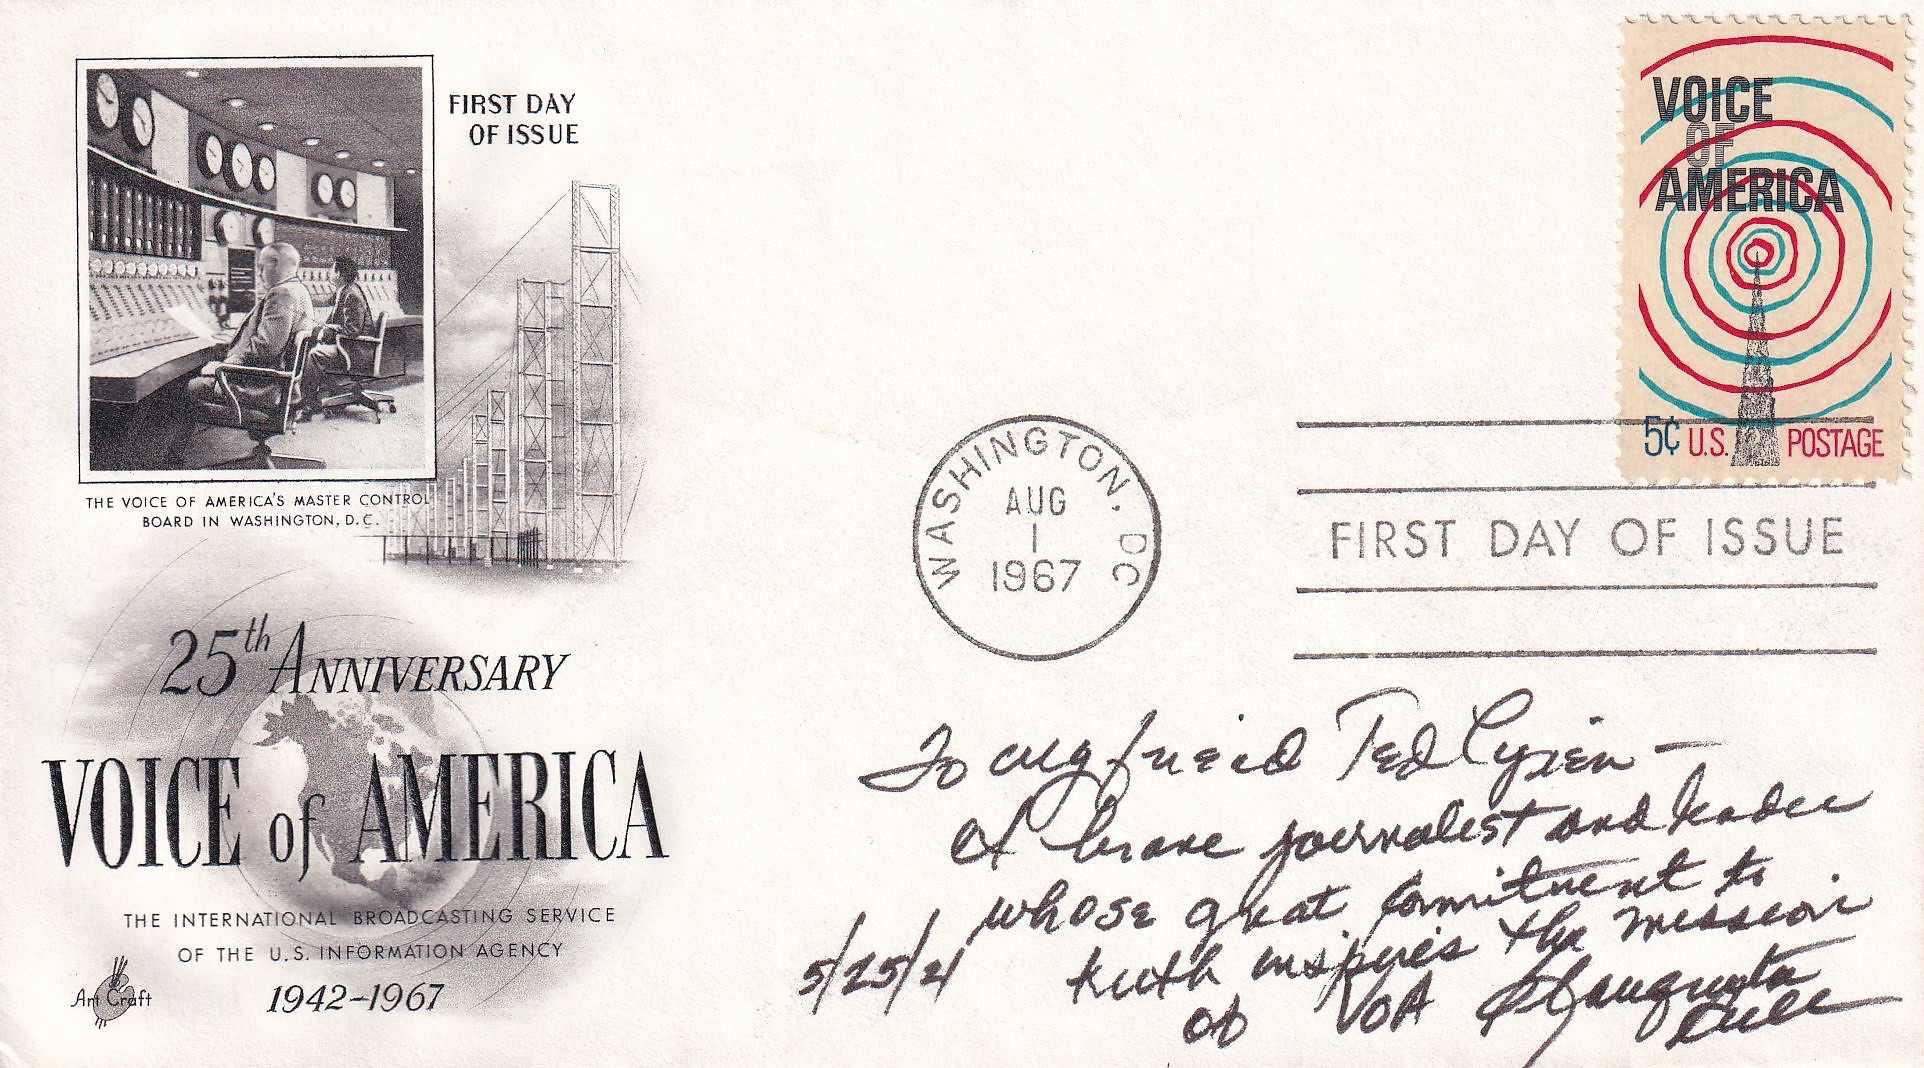 FIRST DAY
OF ISSUE
THE VOICE OF AMERICA'S MASTER CONTROL
BOARD IN WASHINGTON, D.C.
25th ANNIVERSARY
VOICE of AMERICA
THE INTERNATIONAL BROADCASTING SERVICE
OF THE U.S. INFORMATION AGENCY
1942-1967
Art Craft
VOICE
OF
AMERICA
5¢ U.S. POSTAGE
WASHINGTON, DC
AUG
1
1967
FIRST DAY OF ISSUE
To my friend Ted
A brave journalist and leader
whose great commitment to
truth inspires the mission
of VOA
5/25/21